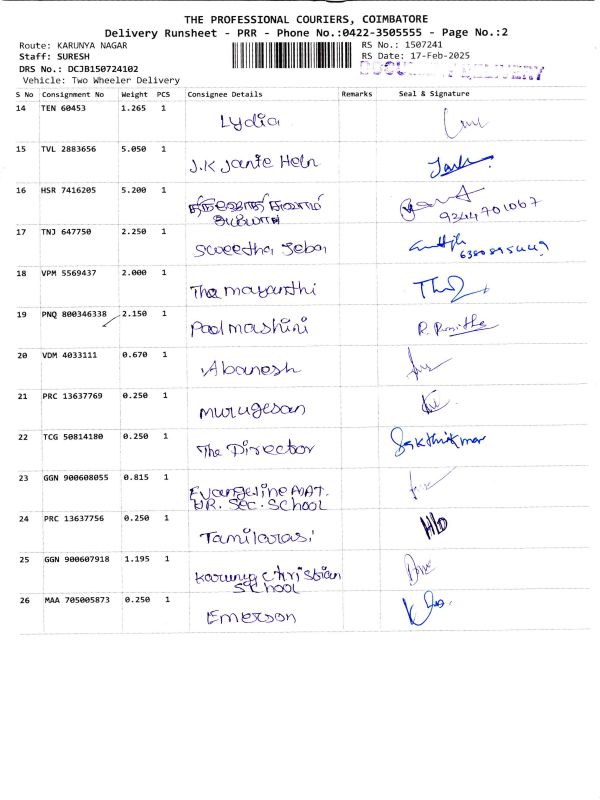 THE PROFESSIONAL COURIERS, COIMBATORE
Delivery Runsheet - PRR - Phone No.:0422-3505555 - Page No.:2
Route: KARUNYA NAGAR
RS No.: 1507241
Staff: SURESH
RS Date: 17-Feb-2025
DRS No.: DCJB150724102
Vehicle: Two Wheeler Delivery
S No Consignment No Weight PCS Consignee Details Remarks Seal & Signature
14 TEN 60453 1.265 1 Lydia
15 TVL 2883656 5.050 1 J.K Janie Heln
16 HSR 7416205 5.200 1
9344701067
17 TNJ 647750 2.250 1 Sweetha Jeba
18 VPM 5569437 2.000 1 The mayanthi
19 PNQ 800346338 2.150 1 Padmashini
20 VDM 4033111 0.670 1 Abanesh
21 PRC 13637769 0.250 1 murugesan
22 TCG 50814180 0.250 1 The Director
23 GGN 900608055 0.815 1 Evangeline MAT.
HR. SEC. SCHOOL
24 PRC 13637756 0.250 1 Tamilarasi
25 GGN 900607918 1.195 1 Karunya Christian
School
26 MAA 705005873 0.250 1 Emerson